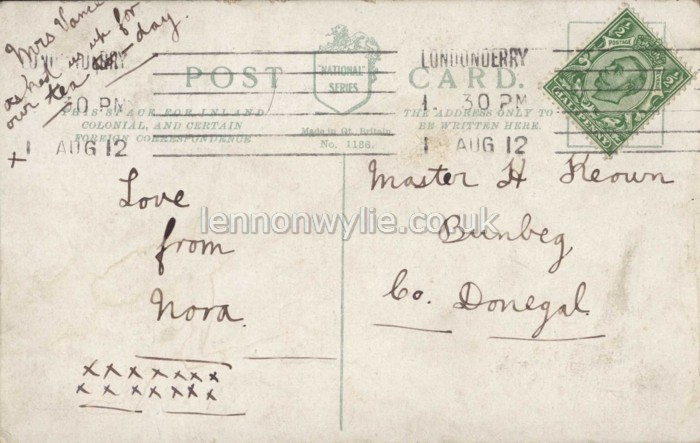 Mrs Vance
asked us up for
our tea to-day.
LONDONDERRY
1. 30 PM
1 AUG 12
POST CARD.
"NATIONAL"
SERIES
THIS SPACE FOR INLAND
COLONIAL, AND CERTAIN
FOREIGN CORRESPONDENCE
Made in Gt. Britain
No. 1186.
THE ADDRESS ONLY TO
BE WRITTEN HERE.
LONDONDERRY
1. 30 PM
1 AUG 12
POSTAGE
HALFPENNY
x
Love
from
Nora.
x x x x x x x
x x x x x x x
Master H Keown
Bunbeg
Co. Donegal.
lennonwylie.co.uk